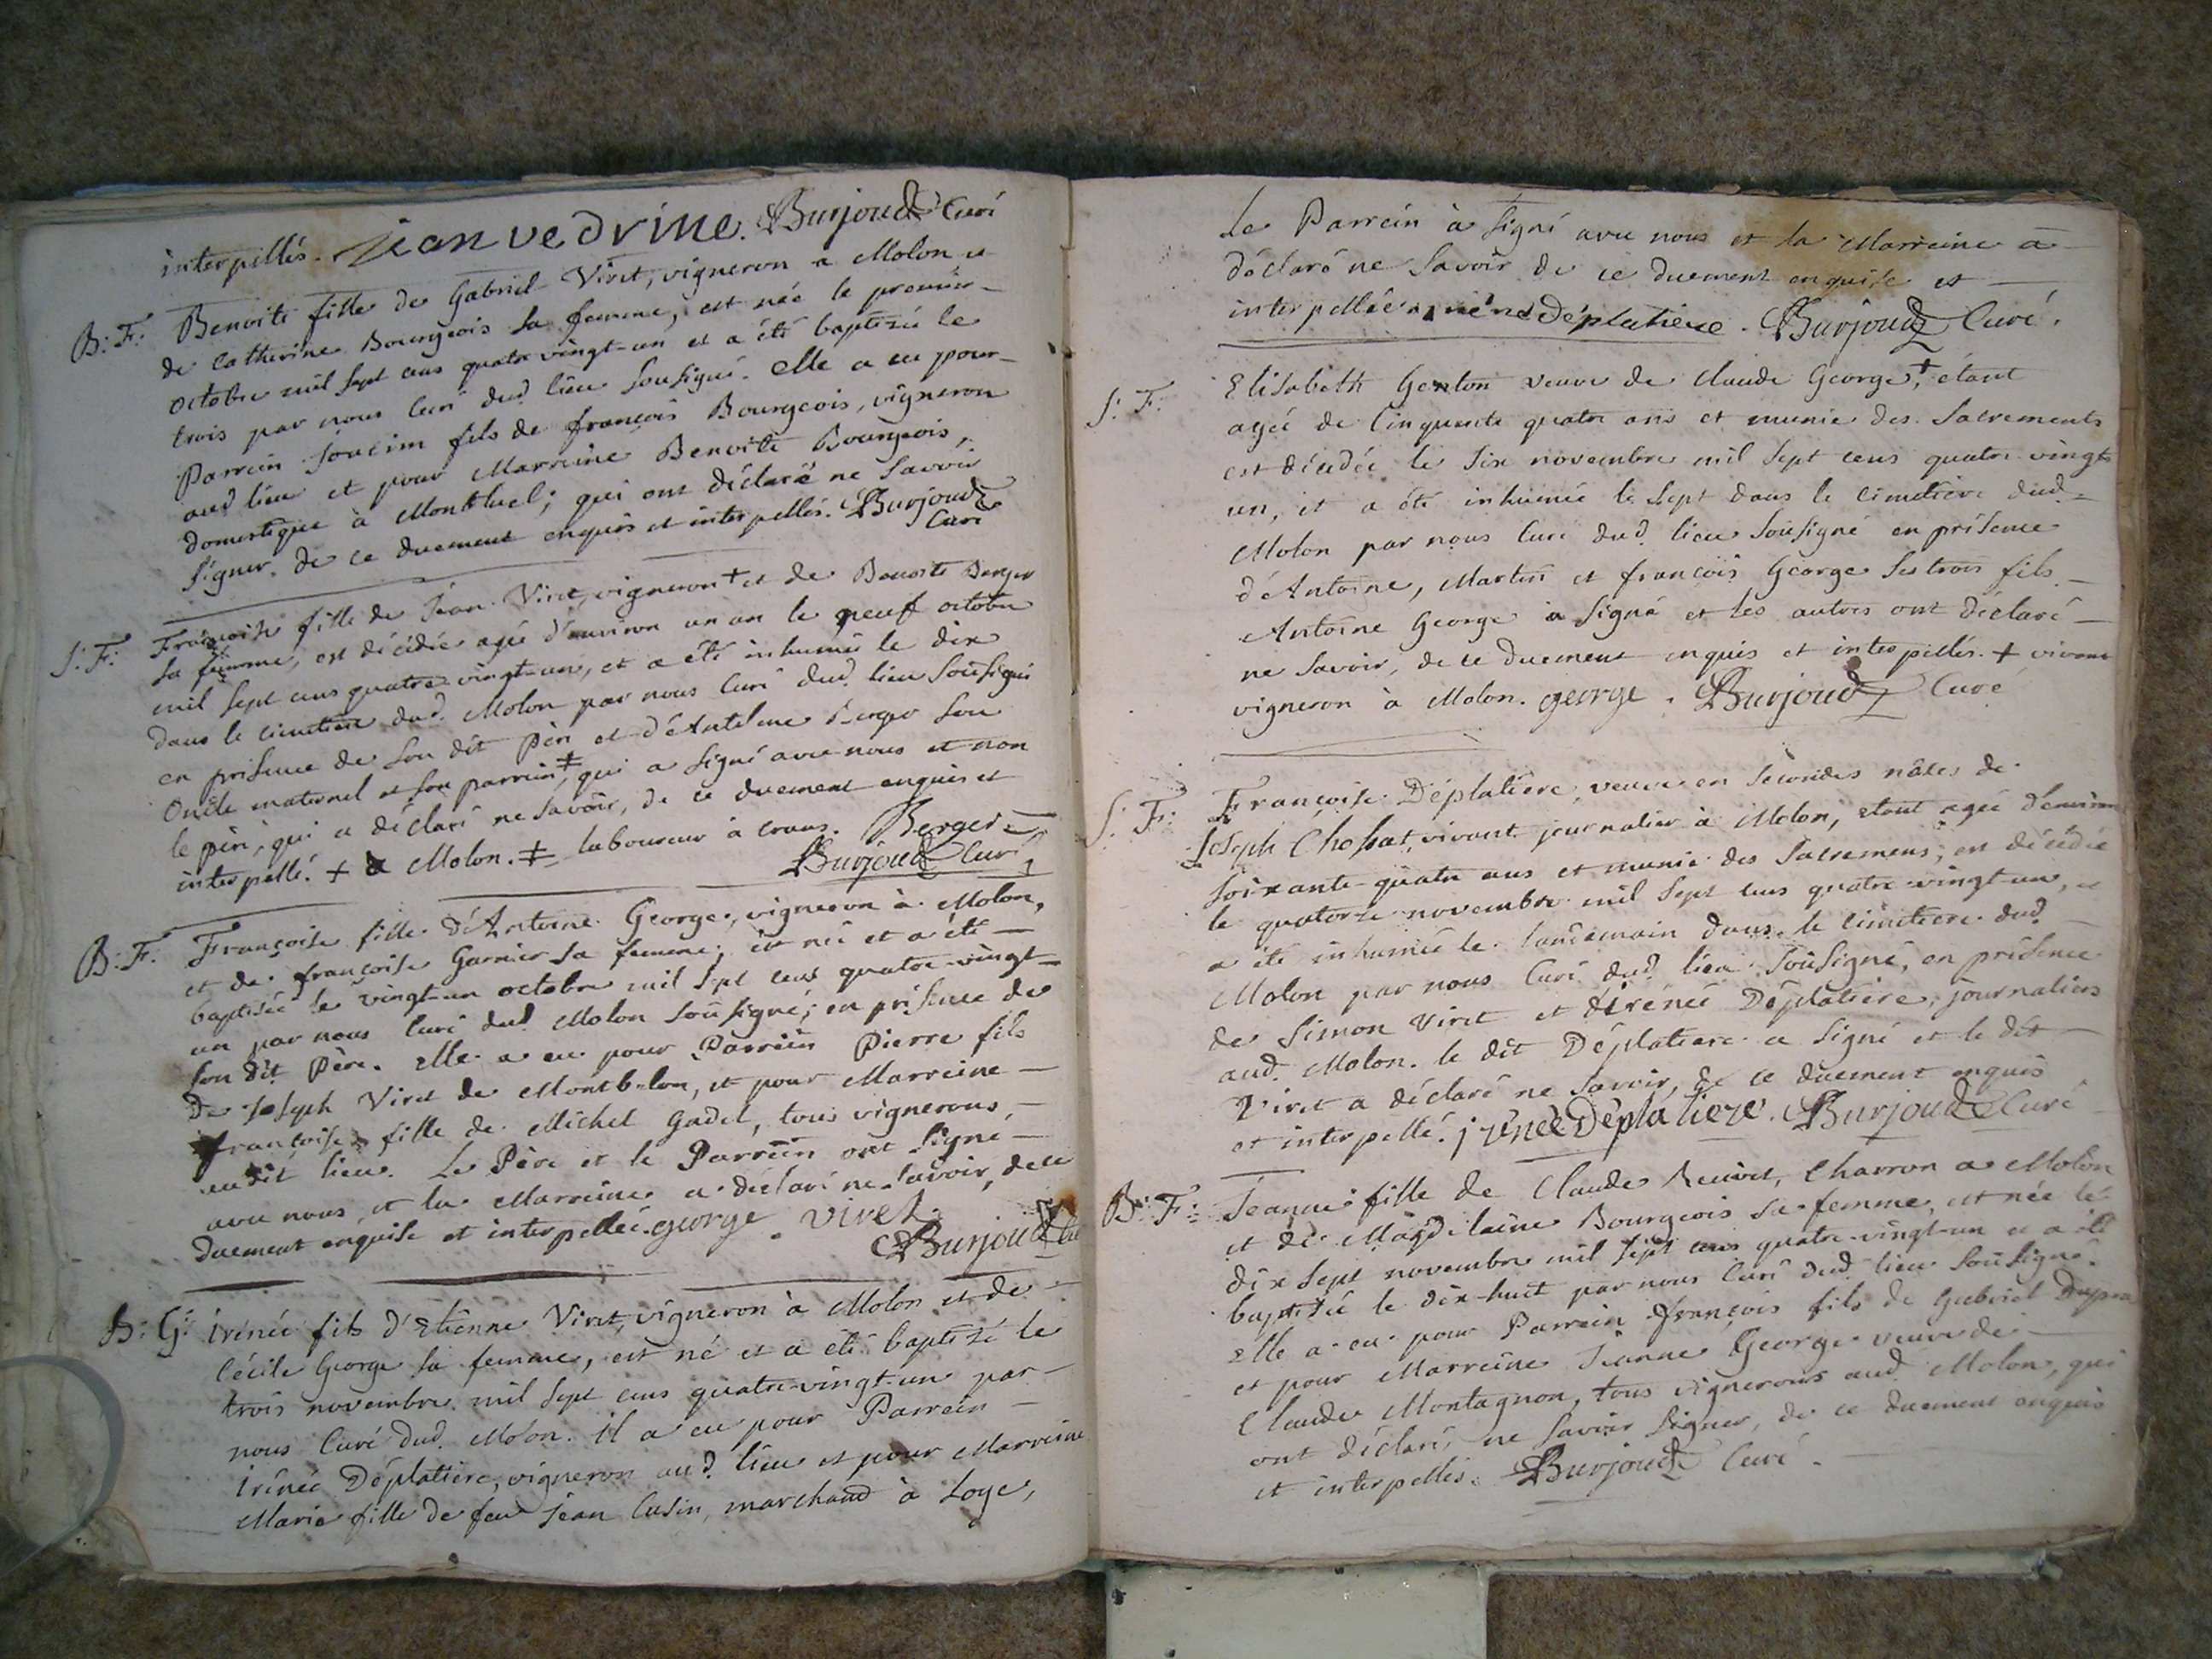 interpellés. jean vedrine. Burjoud Curé
B: F: Benoite fille de Gabriel Viret, vigneron a Molon et
de Catherine Bourgeois sa femme, est née le premier
octobre mil sept cens quatre vingt-un et a été baptisée le
trois par nous Curé dud lieu sousigné. elle a eu pour
Parrein françois Bourgeois, vigneron
aud lieu et pour Marreine Benoite Bourgeois,
domestique à Montluel; qui ont déclaré ne savoir
signer. de ce duement enquis et interpellés. Burjoud
Curé
S: F: Françoise fille de Jean Viret, vigneron + et de Benoite Berger
sa femme, est décédée agée d'environ un an le neuf octobre
mil sept cens quatre vingt-un, et a été inhumée le dix
dans le cimetière dud. Molon par nous Curé dud. lieu sousigné
en présence de son dit Père et d'Antelme Berger son
Oncle maternel et son parrein ‡, qui a signé avec nous et non
le père, qui a déclaré ne savoir, de ce duement enquis et
interpellé. + a Molon. ‡ laboureur à crans. Berger
Burjoud Curé
B: F. Françoise fille d'Antoine George, vigneron à Molon,
et de françoise Garnier sa femme, est née et a été
baptisée le vingt-un octobre mil sept cens quatre-vingt-
un par nous Curé dud Molon sousigné; en présence de
son dit Père. elle a eu pour Parrein Pierre fils
de Joseph Viret de Montb-lon, et pour Marreine
françoise fille de Michel Gadel, tous vignerons,
audit lieu. Le Père et le Parrein ont signé
avec nous, et la Marreine a déclaré ne savoir, de ce
duement enquise et interpellée. george viret
Burjoud
B: G: irénée fils d'Etienne Viret, vigneron à Molon et de
Cécile George sa femme, est né et a été baptisé le
trois novembre mil sept cens quatre-vingt-un par
nous Curé dud. Molon. il a eu pour Parrein
irénée Déplatière, vigneron aud. lieu et pour Marreine
Marie fille de feu Jean Cusin, marchand à Loye,
Le Parrein à signé avec nous et la Marreine a
déclaré ne savoir de ce duement enquise et
interpellée. Déplatiere. Burjoud Curé.
S: F: Elisabeth Genton veuve de Claude George, + étant
agée de Cinquante quatre ans et munie des Sacrements
est décédée le six novembre mil sept cens quatre vingt
un, et a été inhumée le sept dans le cimetière dud
Molon par nous Curé dud. lieu sousigné en présence
d'Antoine, Martin et françois George ses trois fils.
Antoine George a signé et les autres ont déclaré
ne savoir, de ce duement enquis et interpellés. + vivant
vigneron à Molon. george. Burjoud Curé
S: F: Françoise Déplatière, veuve en secondes nôces de
Joseph Chossat, vivant journalier à Molon, etant agée d'environ
soixante-quatre ans et munie des Sacremens, est décédée
le quatorze novembre mil sept cens quatre-vingt-un, et
a été inhumée le landemain dans le cimetiere dud
Molon par nous Curé dud. lieu sousigné, en présence
de Simon Viret et d'irénée Déplatière, journaliers
aud. Molon. le dit Déplatiere a signé et le dit
Viret a déclaré ne savoir, de ce duement enquis
et interpellé. irénée Déplatiere. Burjoud Curé
B: F: Jeanne fille de Claude Charron a Molon
et de Magdelaine Bourgeois sa femme, est née le
dix sept novembre mil sept cens quatre-vingt-un et a été
baptisée le dix-huit par nous Curé dud lieu sousigné.
elle a eu pour Parrein françois fils de Gabriel
et pour Marreine Jeanne George veuve de
Claude Montagnon, tous vignerons aud Molon, qui
ont déclaré, ne savoir signer, de ce duement enquis
et interpellés. Burjoud Curé.